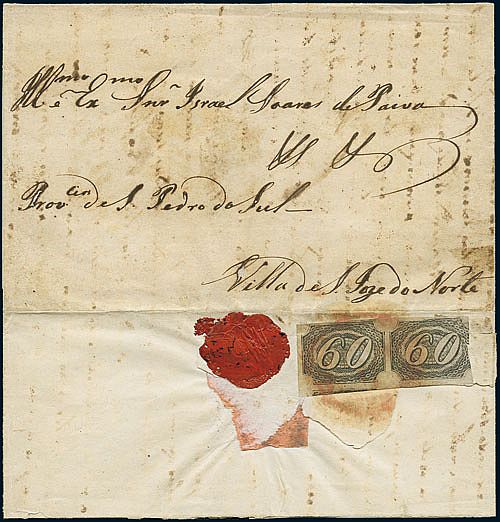 Illmo e Exmo Snr Israel Soares de Paiva
Provcia de S. Pedro do Sul
Villa de S. Joze do Norte
60 60